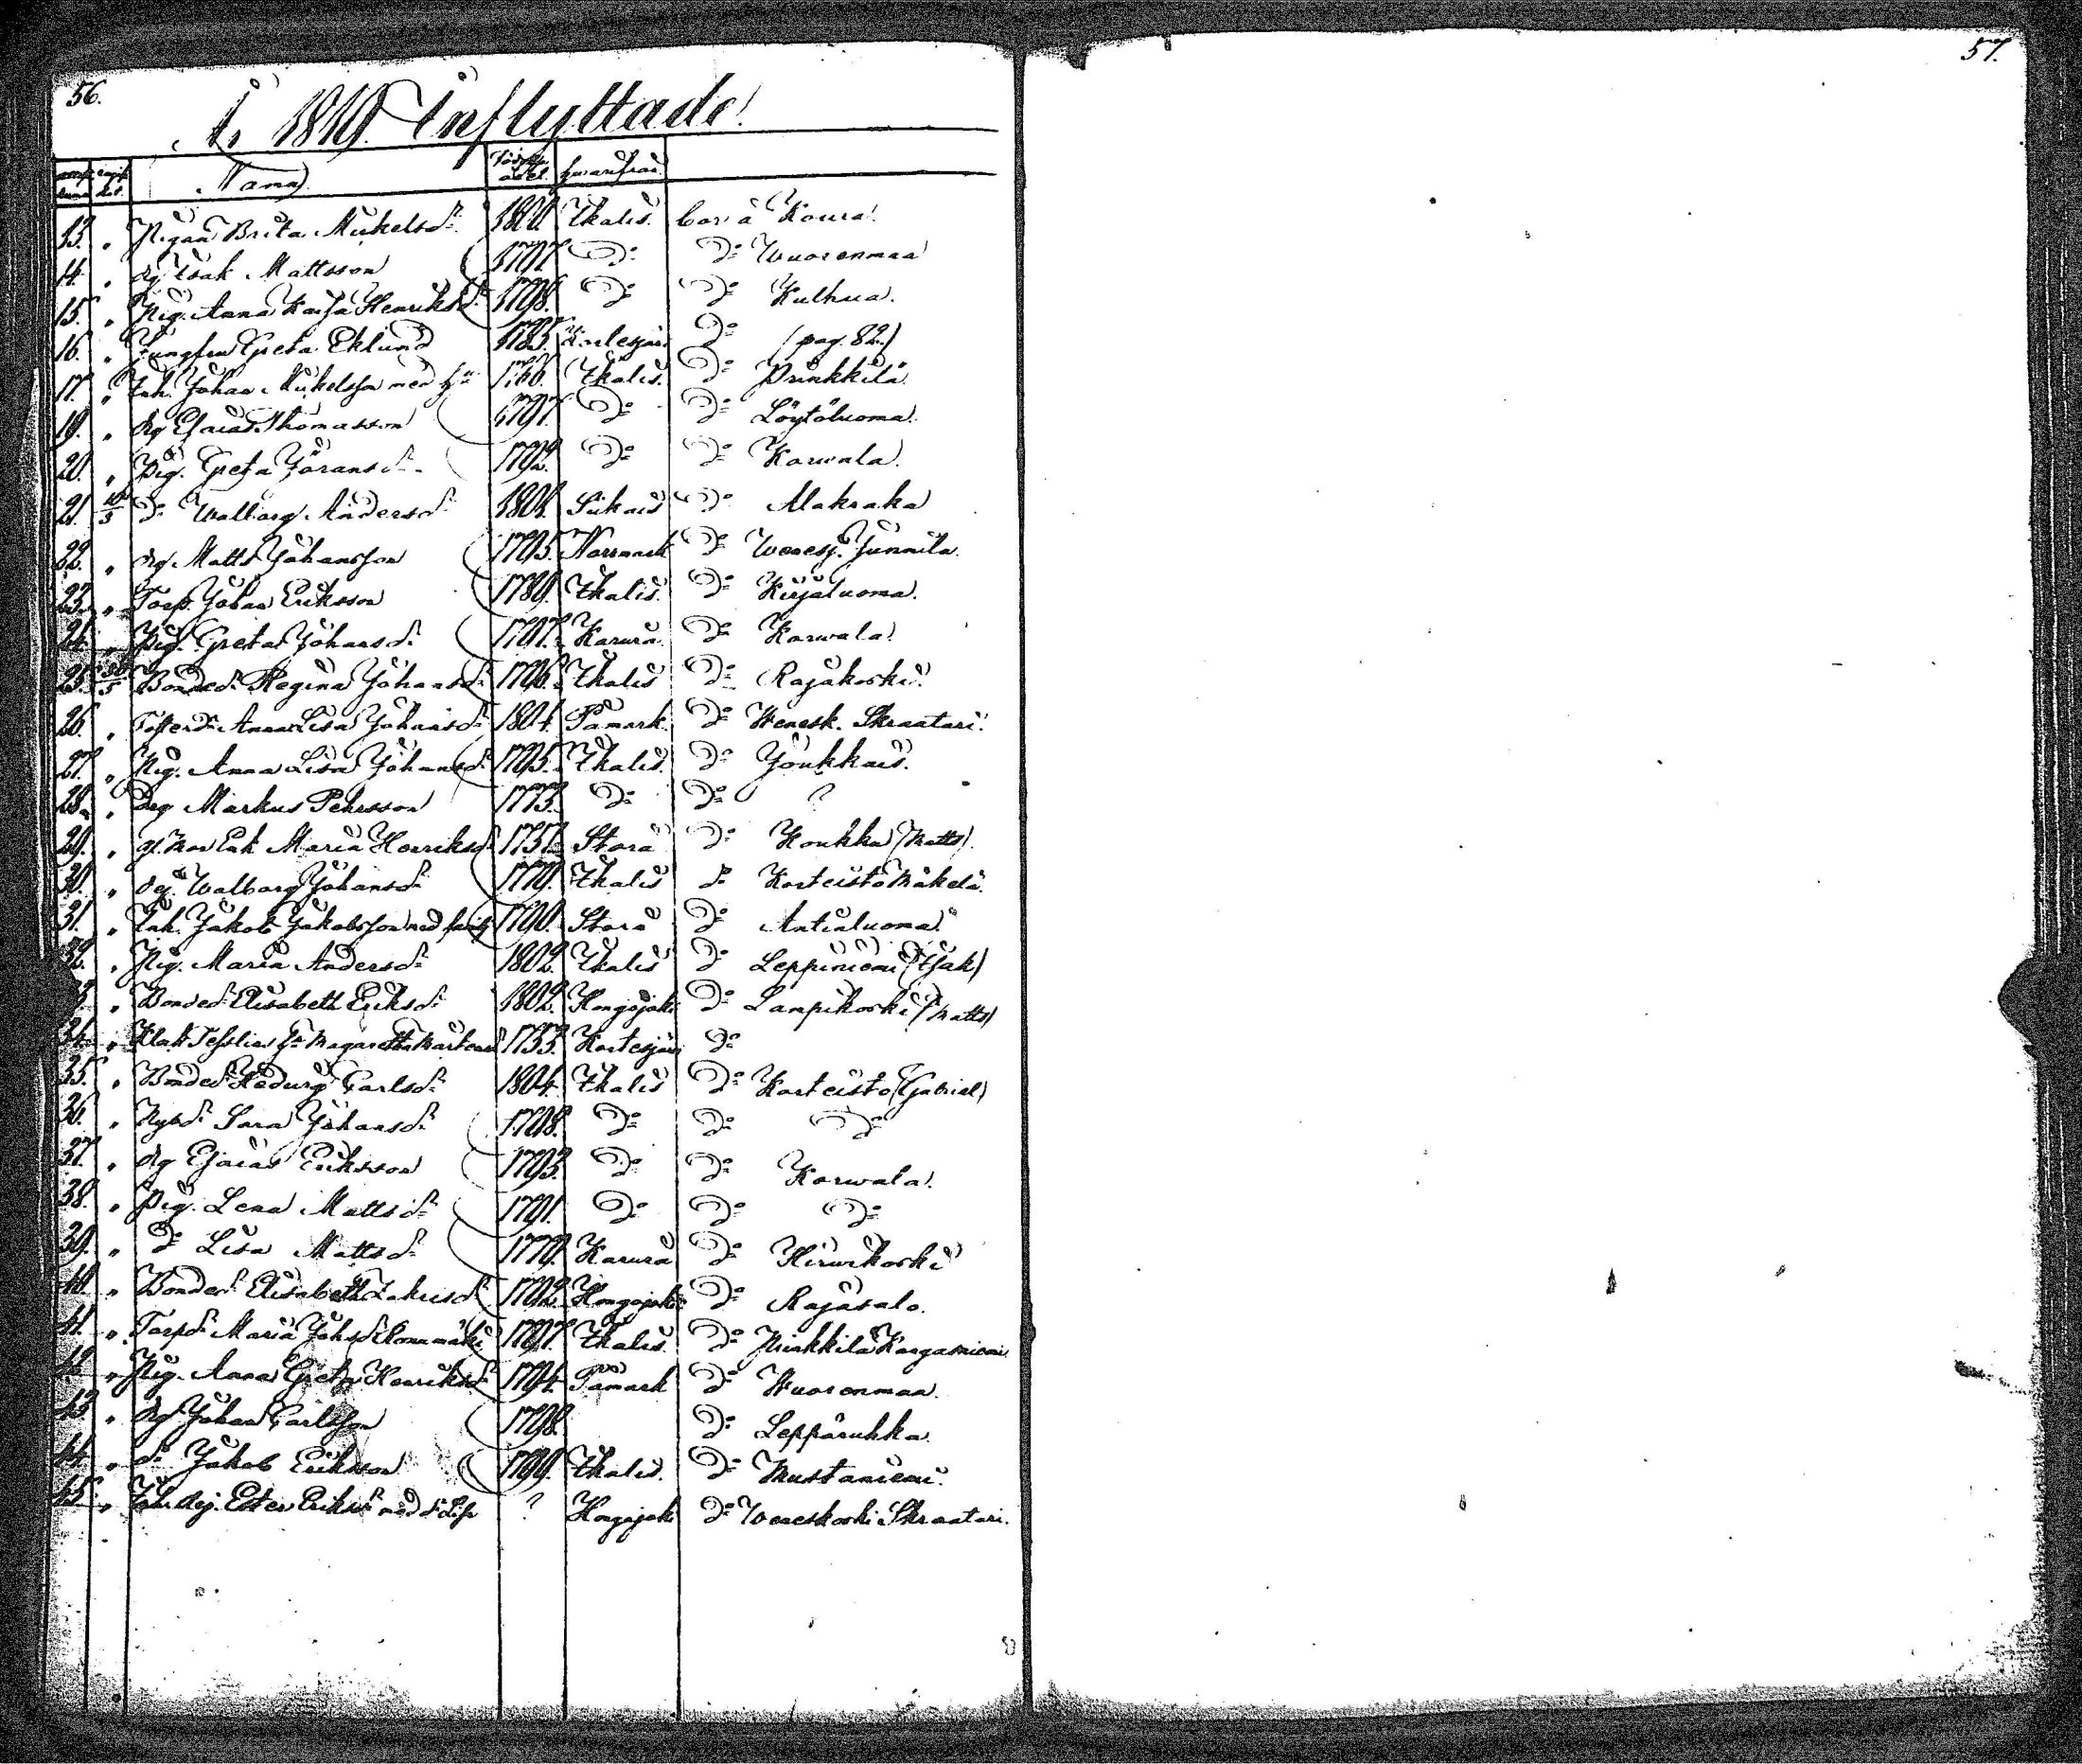 56.
57.
År 1819. Inflyttade.
Namn. Födelse året. hvarifrån.
13. " Pigan Brita Michelsdr 1800. Ikalis. bor å Koura.
14. " drg Isak Mattsson 1797. Do Do Wuorenmaa
15. " Pig. Anna Kaisa Henriksdr 1798. Do Do Kulhua.
16. " Jungfru Greta Eklund 1785. Kortesjärvi Do (pag. 82.)
17. " Inh. Johan Mickelsson med hu 1760. Ikalis. Do Prinkkilä
19. " drg Esaias Thomasson 1797. Do Do Löytöluoma.
20. " Pig. Greta Göransdr 1792. Do Do Karwala.
21. 10/5 do Walborg Andersdr 1801. Siikais Do Alakraka
22. " drg. Matts Johansson 1795. Norrmark Do Wenesj. Junnila.
23. " Torp. Johan Eriksson 1789. Ikalis. Do Kirjaluoma.
24. " Pig. Greta Johansdr 1797. Karvia Do Karwala.
25. 30/5 Bonded. Regina Johansdr 1796. Ikalis Do Rajakoski.
26. " Anna Lisa Johansdr 1804. Påmark. Do Wenesk. Skraatari.
27. " Pig. Anna Lisa Johansdr 1795. Ikalis. Do Joukkais.
28. " drg Markus Pehrsson 1773. Do Do ?
29. " Enk. Maria Henriksdr 1757. Storå Do Koukka (Matts).
30. " Walborg Johansdr 1779. Ikalis do Korteisto Mäkelä.
31. " Inh. Jakob Jakobsson med familj 1790. Storå Do Antialuoma.
32. " Pig. Maria Andersdr 1802. Ikalis Do Leppiniemi (Isak)
33. " Bonded. Elisabeth Eriksdr 1802. Hongojoki Do Lampikoski (Matts)
34. " Klok. Tesslius hu Margaretha 1753. Kortesjärvi Do
35. " Bonded. Hedvig Carlsdr 1804. Ikalis Do Korteisto (Gabriel)
36. " Nybd. Sara Johansdr 1798. Do Do Do
37. " drg Esaias Eriksson 1793. Do Do Karwala.
38. " Pig. Lena Mattsdr 1791. Do Do Do
39. " do Lisa Mattsdr 1779. Karvia Do Hirvikoski
40. " Bonded. Elisabeth Zakrisdr 1792. Hongojoki Do Rajasalo.
41. " Torpd. Maria Johsdr 1797. Ikalis. Do Prinkkilä Kangasniemi
42. " Pig. Anna Greta Henriksdr 1794. Påmark Do Wuorenmaa.
43. " drg Johan Carlsson 1798. Do Leppäruhka.
44. " do Jakob Eriksson 1799. Ikalis. Do Mustaniemi.
45. " Inh. Ester Eriksdr med ? Hongojoki Do Weneskoski Skraatari.